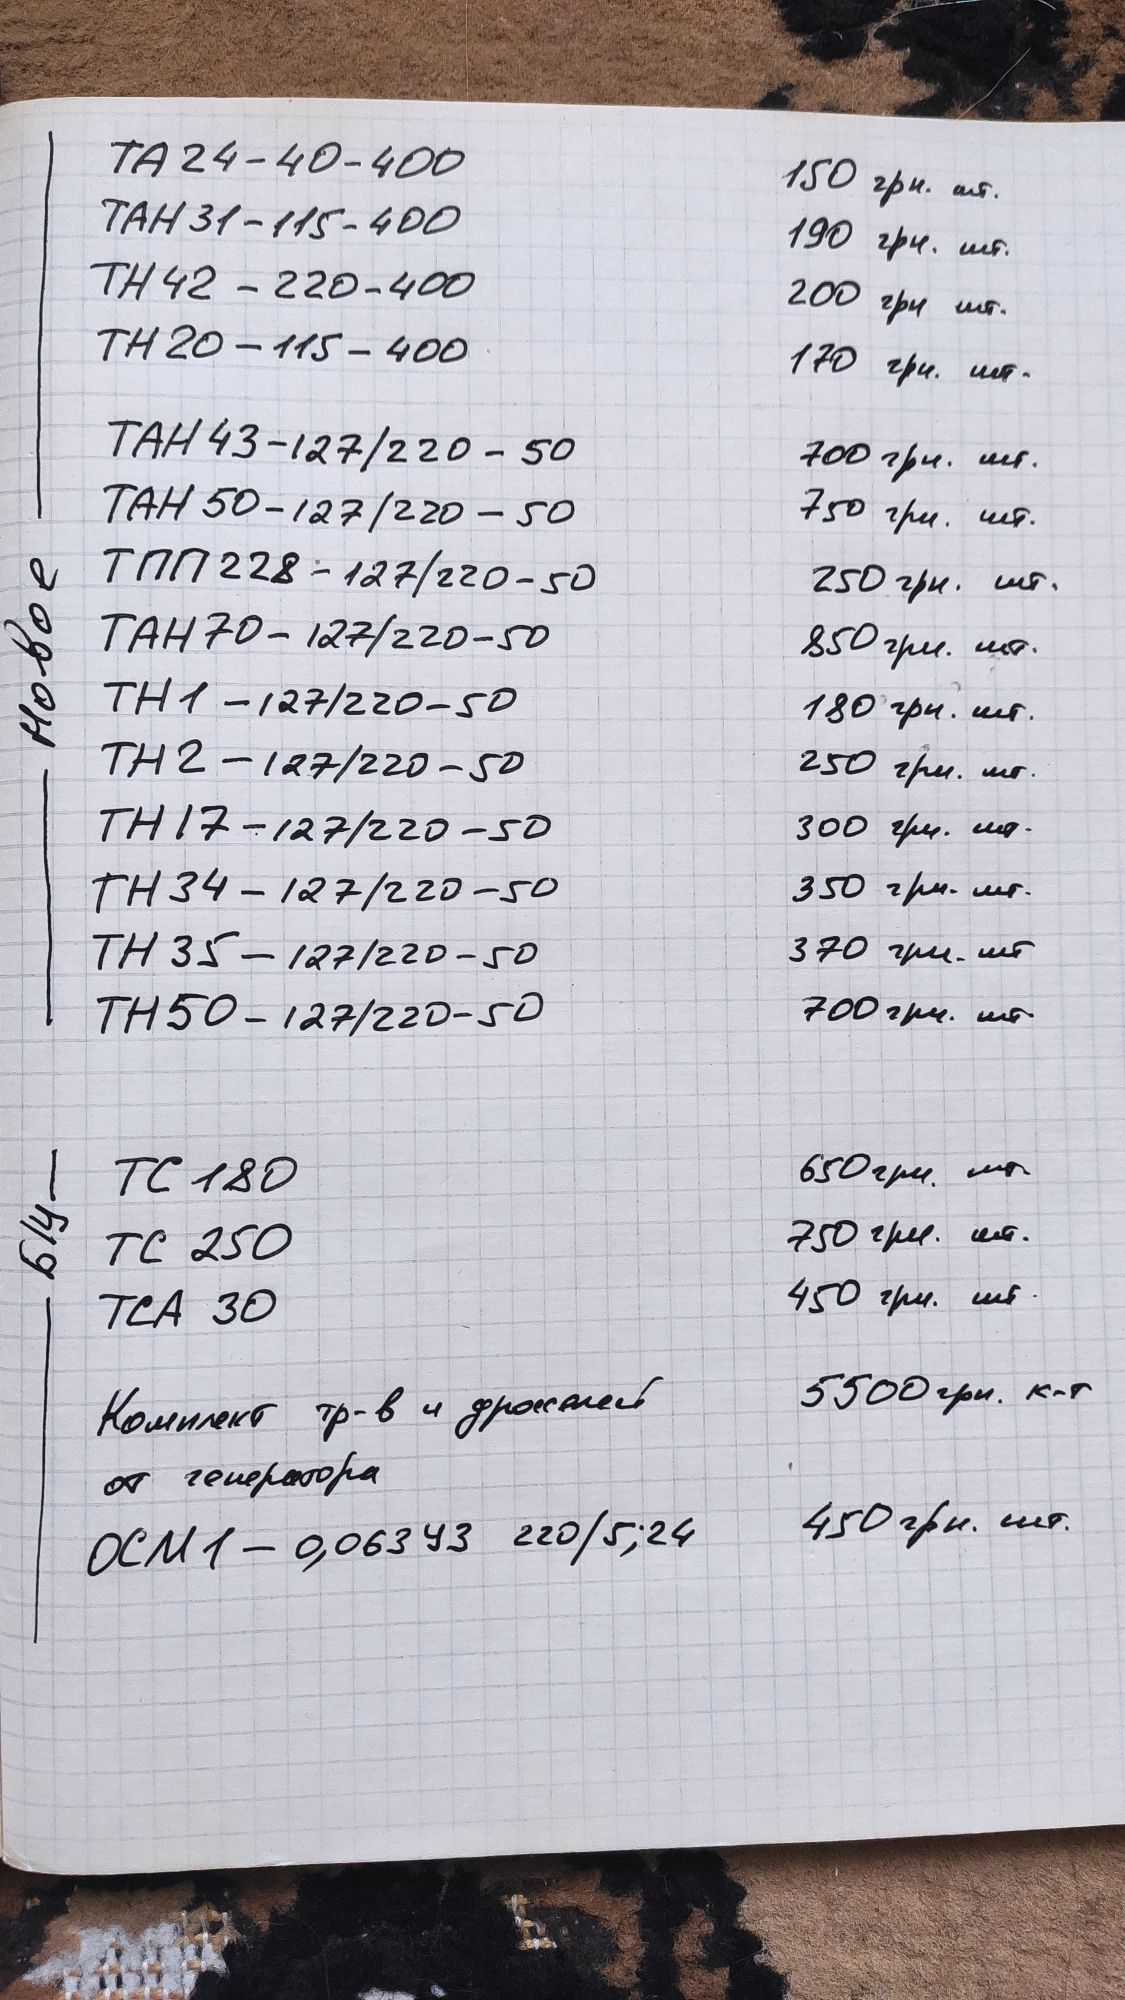 ТА24-40-400 150 грн. шт.
ТАН31-115-400 190 грн. шт.
ТН42-220-400 200 грн шт.
ТН20-115-400 170 грн. шт.
ТАН43-127/220-50 700 грн. шт.
ТАН50-127/220-50 750 грн. шт.
ТПП228-127/220-50 250 грн. шт.
ТАН70-127/220-50 850 грн. шт.
ТН1-127/220-50 180 грн. шт.
ТН2-127/220-50 250 грн. шт.
ТН17-127/220-50 300 грн. шт.
ТН34-127/220-50 350 грн. шт.
ТН35-127/220-50 370 грн. шт
ТН50-127/220-50 700 грн. шт
Новое
ТС 180 650 грн. шт.
ТС 250 750 грн. шт.
ТСА 30 450 грн. шт.
Комплект тр-в и дросселей 5500 грн. к-т
от генератора
ОСМ1-0,063У3 220/5;24 450 грн. шт.
Б/у